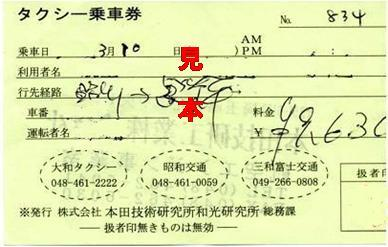 タクシー乗車券 No. 834
乗車日 3月10日 AM
( )PM
見本
利用者名
行先経路
車番 料金
運転者名 ¥
大和タクシー 昭和交通 三和富士交通
048-461-2222 048-461-0059 049-266-0808
扱者印
※発行 株式会社 本田技術研究所和光研究所 総務課
―扱者印無きものは無効―